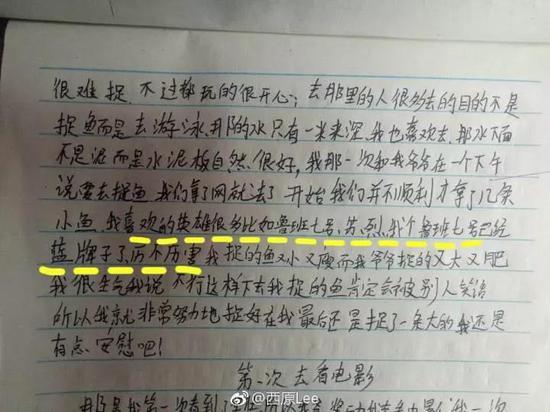 很难捉,不过都玩的很开心;去那里的人很多去的目的不是
捉鱼而是去游泳,那的水只有一米来深,我也喜欢去,那水下面
不是泥而是水泥板自然很好,我那一次和我爷爷在一个下午
说要去捉鱼,我们拿了网就去了,开始我们并不顺利才拿了几条
小鱼,我喜欢的英雄很多比如鲁班七号,苏烈,我个鲁班七号已经
蓝牌子了历不历害,我捉的鱼又小又瘦而我爷爷捉的又大又肥
我很生气我说不行这样下去我捉的鱼肯定会被别人笑话
所以我就非常努力地捉好在我最后还是捉了一条大的我还是
有点安慰吧!
第一次去看电影
@西原Lee